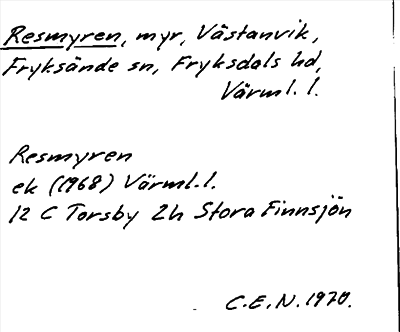 Resmyren, myr, Västanvik,
Fryksände sn, Fryksdals hd,
Värml. l.
Resmyren
ek (1968) Värml.l.
12 C Torsby 2h Stora Finnsjön
C.E.N. 1970.